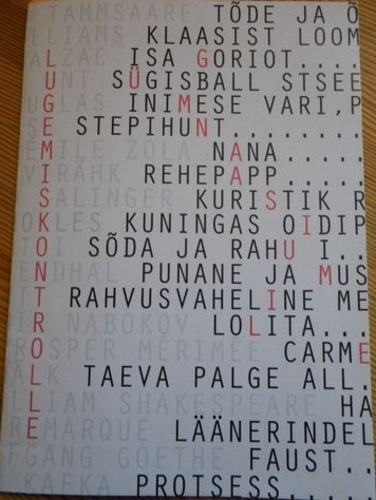 TAMMSAARE TÕDE JA Õ
LLIAMS KLAASIST LOOM
LZAC ISA GORIOT....
UNT SÜGISBALL STSEE
UGLAS INIMESE VARI,P
SE STEPIHUNT........
ÉMILE ZOLA NANA.....
VIRÄHK REHEPAPP.....
SALINGER KURISTIK R
OKLES KUNINGAS OIDIP
TOI SÕDA JA RAHU I..
ENDHAL PUNANE JA MUS
TT RAHVUSVAHELINE ME
IR NABOKOV LOLITA...
ROSPER MÉRIMÉE CARME
ÄLK TAEVA PALGE ALL.
LLIAM SHAKESPEARE HA
REMARQUE LÄÄNERINDEL
FGANG GOETHE FAUST..
KAFKA PROTSESS.....